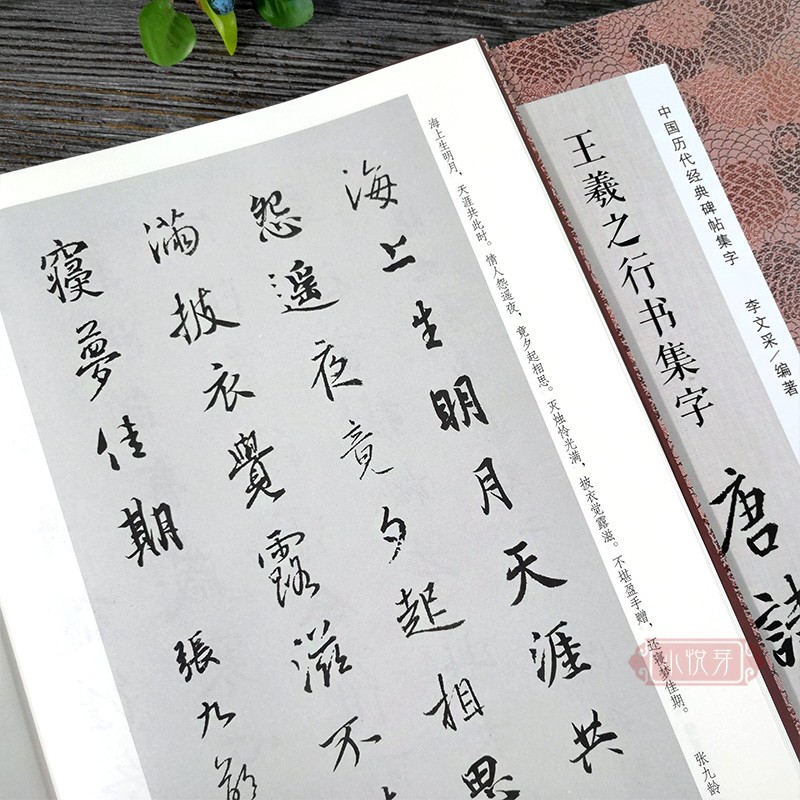 中国历代经典碑帖集字 李文采／编著
王羲之行书集字
唐詩
海上生明月，天涯共此时。情人怨遥夜，竟夕起相思。灭烛怜光满，披衣觉露滋。不堪盈手赠，还寝梦佳期。 张九龄
海上生明月天涯共
怨遥夜竟夕起相思
滿披衣覺露滋不
寢夢佳期 張九齡
小悦芽